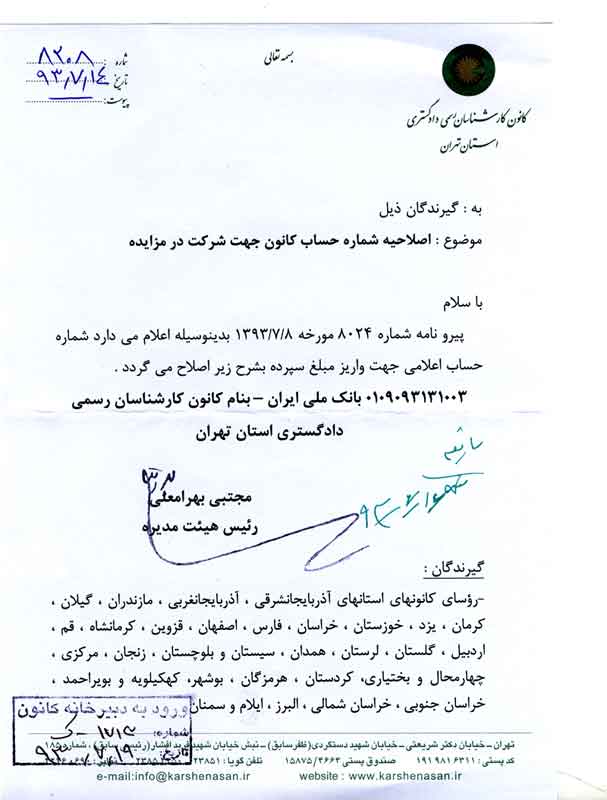 بسمه تعالی
شماره: ۸۲۰۸
تاریخ ۹۳/۷/۱۴
پیوست:
کانون کارشناسان رسمی دادگستری
استان تهران
به : گیرندگان ذیل
موضوع : اصلاحیه شماره حساب کانون جهت شرکت در مزایده
با سلام
پیرو نامه شماره ۸۰۲۴ مورخه ۱۳۹۳/۷/۸ بدینوسیله اعلام می دارد شماره
حساب اعلامی جهت واریز مبلغ سپرده بشرح زیر اصلاح می گردد .
۰۱۰۹۰۹۳۱۳۱۰۰۳ بانک ملی ایران – بنام کانون کارشناسان رسمی
دادگستری استان تهران
مجتبی بهرامعلی
رئیس هیئت مدیره
گیرندگان :
-رؤسای کانونهای استانهای آذربایجانشرقی ، آذربایجانغربی ، مازندران ، گیلان ،
کرمان ، یزد ، خوزستان ، خراسان ، فارس ، اصفهان ، قزوین ، کرمانشاه ، قم ،
اردبیل ، گلستان ، لرستان ، همدان ، سیستان و بلوچستان ، زنجان ، مرکزی ،
چهارمحال و بختیاری، کردستان ، هرمزگان ، بوشهر، کهکیلویه و بویراحمد ،
خراسان جنوبی ، خراسان شمالی ، البرز ، ایلام و سمنان
ورود به دبیرخانه کانون
شماره:
تاریخ: ۹۳/۷/۱۹
تهران – خیابان دکتر شریعتی – خیابان شهید دستگردی (ظفر سابق) – نبش خیابان شهید فرید افشار
کد پستی : ۱۹۱۹۸۱۶۳۱۱ صندوق پستی ۱۵۸۷۵/۴۶۶۴ تلفن گویا : ۲۳۸۵۱
e-mail:info@karshenasan.ir website : www.karshenasan.ir